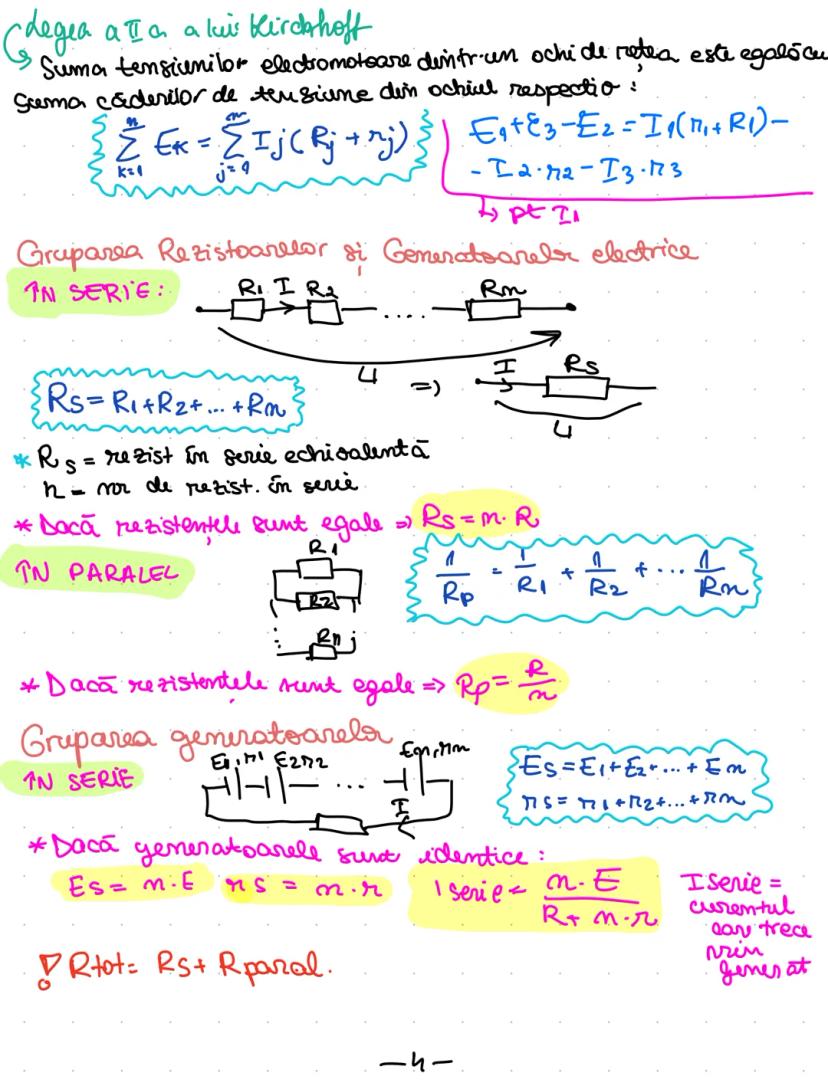 Legea a II a a lui Kirchhoff
↳ Suma tensiunilor electromotoare dintr-un ochi de rețea este egală cu
suma căderilor de tensiune din ochiul respectiv :
n Σ k=1 Ek = m Σ j=1 Ij ( Rj + rj )
E1+E3-E2 = I1(r1+R1)-
- I2·r2 - I3·r3
↳ pt I1
Gruparea Rezistoarelor și Generatoarelor electrice
ÎN SERIE :
R1 I R2 .... Rn
U => I Rs
U
Rs = R1+R2+...+Rn
* Rs = rezist în serie echivalentă
n = nr de rezist. în serie
* Dacă rezistențele sunt egale => Rs = n·R
ÎN PARALEL
R1
R2
Rn
1/Rp = 1/R1 + 1/R2 + ... 1/Rn
* Dacă rezistențele sunt egale => Rp = R/n
Gruparea generatoarelor
ÎN SERIE
E1,r1 E2r2 ... En,rn
I
Es = E1+E2+...+En
rs = r1+r2+...+rn
* Dacă generatoarele sunt identice :
Es = n·E rs = n·r I serie = n·E/R+n·r
I serie =
curentul
care trece
prin
generat
! Rtot = Rs + Rparal.
-4-